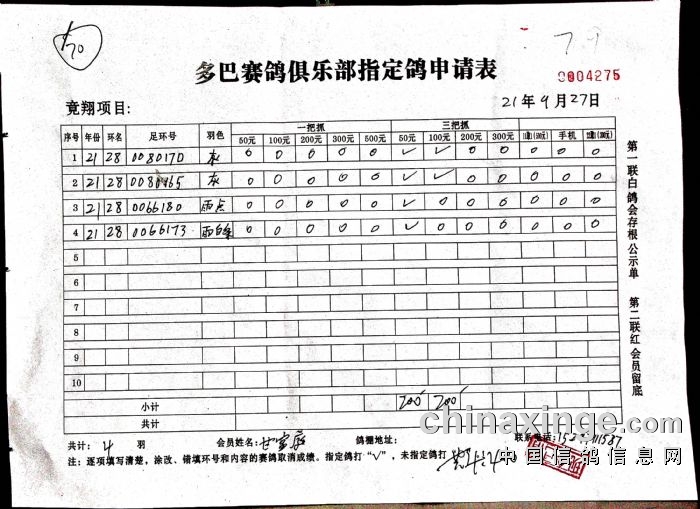 70
7.9
多巴赛鸽俱乐部指定鸽申请表
0004275
竞翔项目:
21年9月27日
序号 年份 环名 足环号 羽色 一把抓 三把抓 手机
50元 100元 200元 300元 500元 50元 100元 200元 300元
1 21 28 0080170 灰 0 0 0 0 0 ✓ ✓ 0 0 0 0 0
2 21 28 灰 0 0 0 0 0 ✓ ✓ 0 0 0 0 0
3 21 28 0066180 雨点 0 0 0 0 0 ✓ ✓ 0 0 0 0 0
4 21 28 0066173 0 0 0 0 0 0 0 0 0 0 0
5
6
7
8
9
10
小计 200 200
共计
共计: 4 羽 会员姓名: 鸽棚地址: 联系电话:
注:逐项填写清楚,涂改、错填环号和内容的赛鸽取消成绩。指定鸽打“√”,未指定鸽打
第一联白 鸽会存根公示单 第二联红 会员留底
chinaxinge.com
中国信鸽信息网